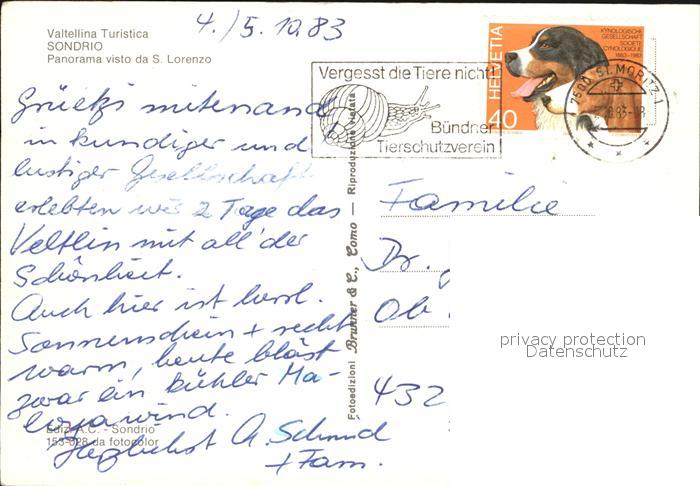 Valtellina Turistica
SONDRIO
Panorama visto da S. Lorenzo
4./5.10.83
Grüezi mitenand
in kundiger und
lustiger Gesellschaft
erlebten wir 2 Tage das
Veltlin mit all' der
Schönheit.
Auch hier ist herrl.
Sonnenschein + recht
warm, heute bläst
zwar ein kühler Ma-
lojawind.
Herzlichst A. Schmid
+ Fam.
Ediz. A.C. - Sondrio
153-928 da fotocolor
Fotoedizioni Brunner & C., Como — Riproduzione vietata
Vergesst die Tiere nicht!
Bündner
Tierschutzverein
HELVETIA
40
KYNOLOGISCHE
GESELLSCHAFT
SOCIETE
CYNOLOGIQUE
1883-1983
7500 ST. MORITZ 1
.10.83-18
Familie
Dr.
Ob
432
privacy protection
Datenschutz